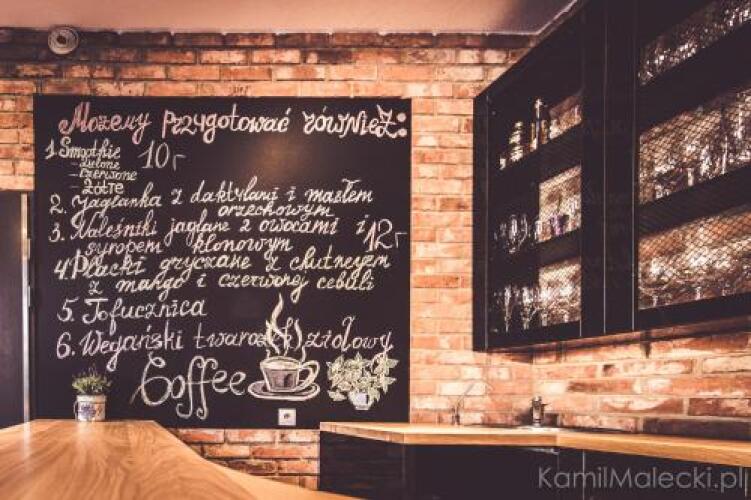 Możemy przygotować również:
1. Smoothie 10
- zielone
- czerwone
- żółte
2. Jaglanka z daktylami i masłem
orzechowym
3. Naleśniki jaglane z owocami i
syropem klonowym 12
4. Placki gryczane z chutneyem
z mango i czerwonej cebuli
5. Tofucznica
6. Wegański twarożek ziołowy
Coffee
KamilMalecki.pl